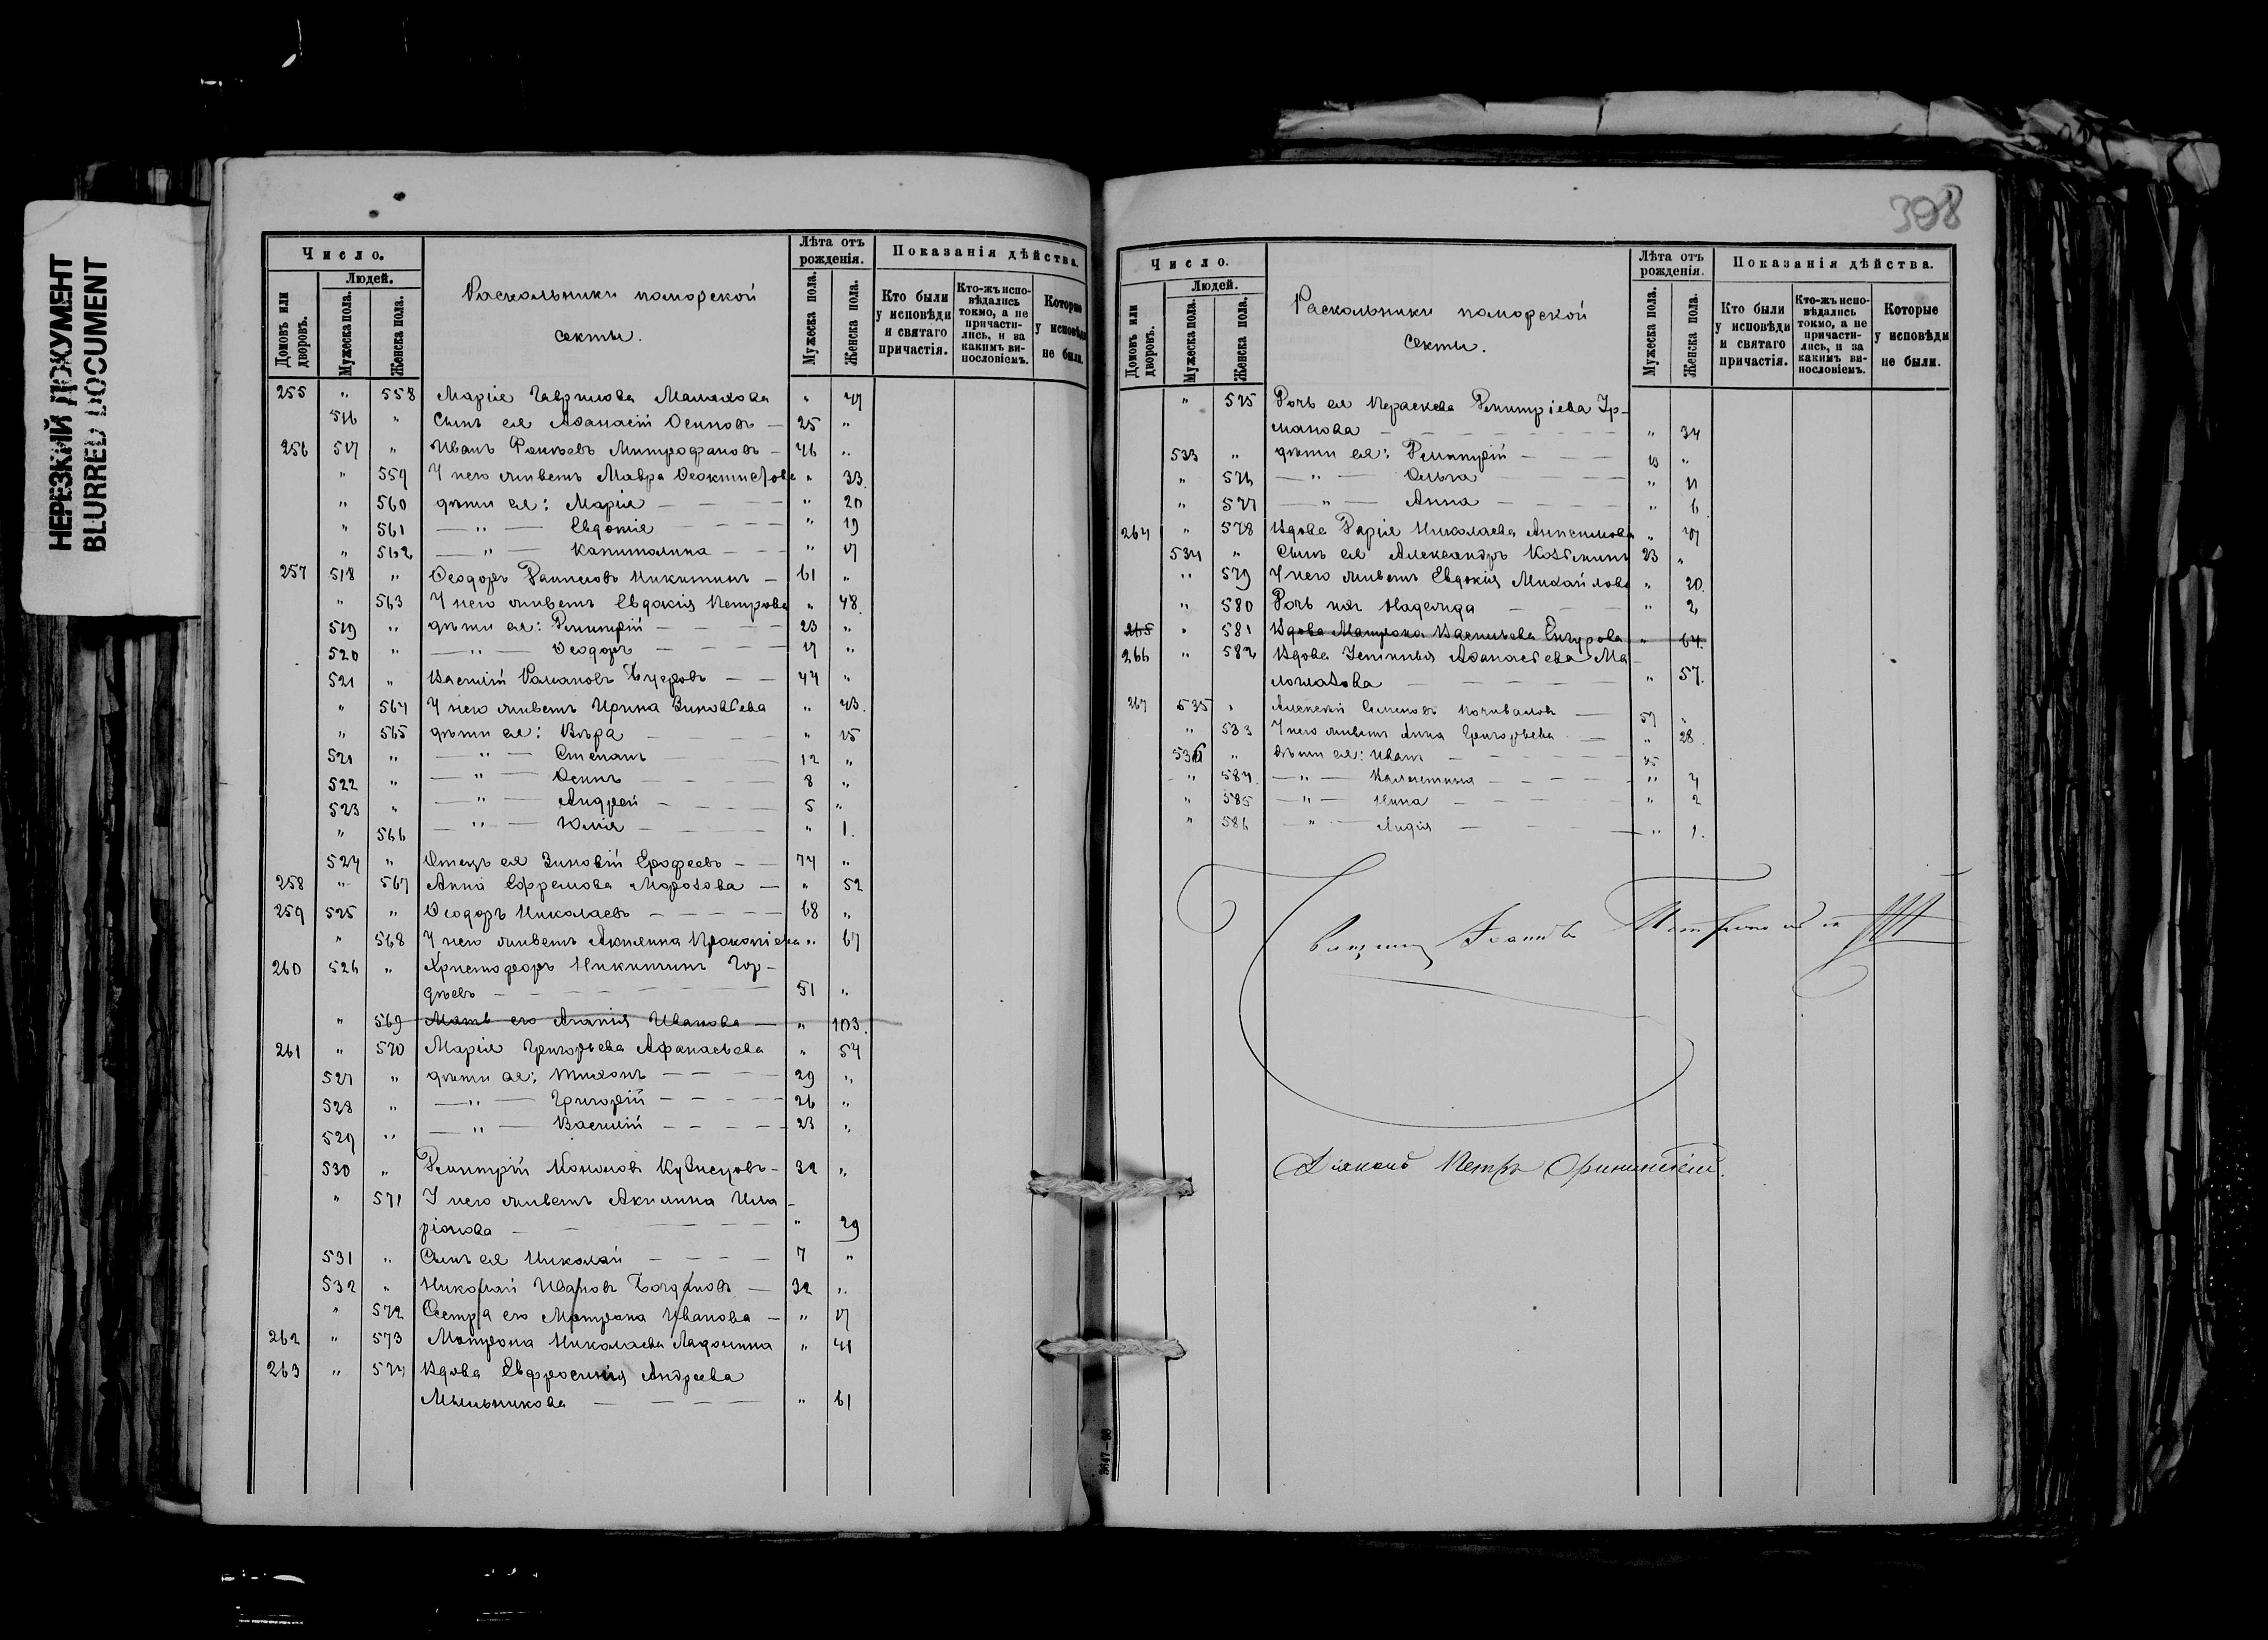 НЕРЕЗКИЙ ДОКУМЕНТ
BLURRED DOCUMENT
Число.
Людей.
Домовъ или дворовъ.
Мужеска пола.
Женска пола.
Раскольники поморской
секты.
Лѣта отъ рожденія.
Мужеска пола.
Женска пола.
Показанія дѣйства.
Кто были у исповѣди и святаго причастія.
Кто-жъ исповѣдались токмо, а не причастились, и за какимъ винословіемъ.
Которые у исповѣди не были.
255 " 558 Марія Гаврилова " 47
516 " Сынъ ея Аѳанасій Осиповъ — 25 "
256 517 " Иванъ Митрофановъ — 46 "
" 559 У него живетъ Мавра Ѳеоктистова " 33.
" 560 дѣти ея: Марія — " 20
" 561 — " — Евдокія — " 19
" 562 — " — Капитолина — "
257 518 " Ѳеодоръ Даниловъ Никитинъ — 61 "
" 563 У него живетъ Евдокія Петрова " 48.
519 " дѣти ея: Димитрій — 23 "
520 " — " — Ѳеодоръ — "
521 " Василій Романовъ — 44 "
" 564 У него живетъ Ирина Зиновьева " 43.
" 565 дѣти ея: Вѣра — " 15
521 " — " — Степанъ 12 "
522 " — " — Осипъ — 8 "
523 " — " — Андрей — 5 "
" 566 — " — Юлія — " 1.
524 " Отецъ ея Зиновій Ерофеевъ — 74 "
258 " 567 Анна Ефремова Морозова — " 52
259 525 " Ѳеодоръ Николаевъ — 68 "
" 568 У него живетъ Акилина Прокопіева " 67
260 526 " Христофоръ Никитинъ Гор-
дѣевъ — 51 "
" 569 Мать его Иванова — " 103.
261 " 570 Марія Григорьева Афанасьева " 54
527 " дѣти ея: Тихонъ — 29 "
528 " — " — Григорій — 26 "
529 " — " — Василій — 23 "
530 " Димитрій Кононовъ Кузнецовъ — 32 "
" 571 У него живетъ Акилина Ила-
ріонова — " 29
531 " Сынъ ея Николай — 7 "
532 " Николай Ивановъ Богдановъ — 32 "
" 572 Сестра его Матрона Иванова — "
262 " 573 Матрона Николаева Ладонина " 41
263 " 574 Вдова Евфросинія Андреева
Мыльникова — " 61
398
Число.
Людей.
Домовъ или дворовъ.
Мужеска пола.
Женска пола.
Раскольники поморской
секты.
Лѣта отъ рожденія.
Мужеска пола.
Женска пола.
Показанія дѣйства.
Кто были у исповѣди и святаго причастія.
Кто-жъ исповѣдались токмо, а не причастились, и за какимъ винословіемъ.
Которые у исповѣди не были.
" 575 Дочь ея Параскева Димитріева Ер-
макова — " 34
533 " дѣти ея: Димитрій — "
" 576 — " — Ольга — " 11
" 577 — " — Анна — " 6
264 " 578 Вдова Дарія Николаева Анисимова " 47
534 " Сынъ ея Александръ Козьминъ 23 "
" 579 У него живетъ Евдокія Михайлова " 20.
" 580 Дочь ихъ Надежда — " 2
265 " 581 Вдова Матрона Васильева " 64.
266 " 582 Вдова Аѳанасьева Ма-
— " 57.
267 535 " Алексій Семеновъ — 57 "
" 583 У него живетъ Анна Григорьева — " 28
536 " Дѣти ея: Иванъ — 15
" 584 — " — Валентина — " 4
" 585 — " — Нина — " 2
" 586 — " — Лидія — " 1.
Діаконъ Петръ
3647—98